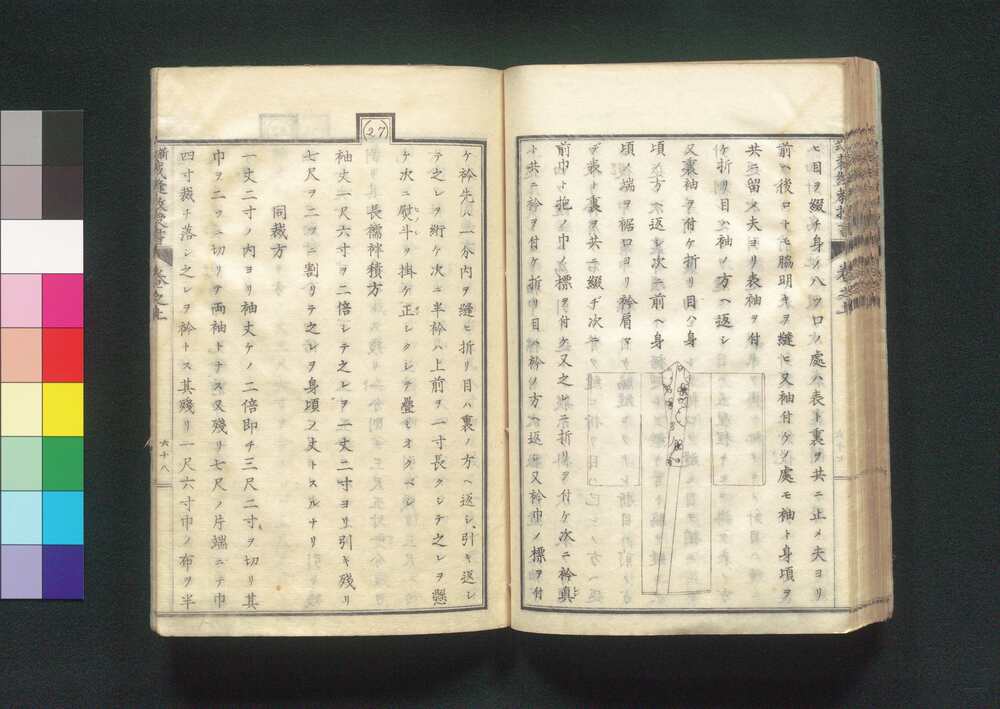 ヒ目ヲ綴チ身ノ八ツ口ノ處ハ表ト裏ヲ共ニ止メ夫ヨリ
前ハ後ロトモ脇明キヲ縫ヒ又袖付ケノ處モ袖ト身頃ヲ
共ニ留メ夫ヨリ表袖ヲ付
ケ折リ目ハ袖ノ方ヘ返シ
又裏袖ヲ付ケ折リ目ハ身
頃ノ方ニ返シ次ニ前ヘ身
頃ノ端ヲ裾口ヨリ衿肩マ
デ表ト裏ヲ共ニ綴ヂ次
前巾ト抱ノ巾ノ標ヲ付ケ又之レニ折リヲ付ケ次ニ衿真
ト共ニ衿ヲ付ケ折リ目ハ衿ノ方ヘ返シ又衿巾ノ標ヲ付
卷之上
(27)
ケ衿先ハ一分内ヲ縫ヒ折リ目ハ裏ノ方ヘ返シ引キ返シ
テ之レヲ絎ケ次ニ半衿ハ上前ヲ一寸長クシテ之レヲ懸
ケ次ニ熨斗ヲ掛ケ正シクシテ疊ミオクベシ
長襦袢積方
袖丈一尺六寸ヲ二倍シテ之レヲ一丈二寸ヨリ引キ残リ
七尺ヲ二ツニ割リテ之レヲ身頃ノ丈トスルナリ
同裁方
一丈二寸ノ内ヨリ袖丈ケノ二倍即チ三尺二寸ヲ切リ其
巾ヲ二ツニ切リテ両袖トナス又残リ七尺ノ片端ニテ巾
四寸裁チ落シ之レヲ衿トス其残リ一尺六寸巾ノ布ヲ半
卷之上
六十八